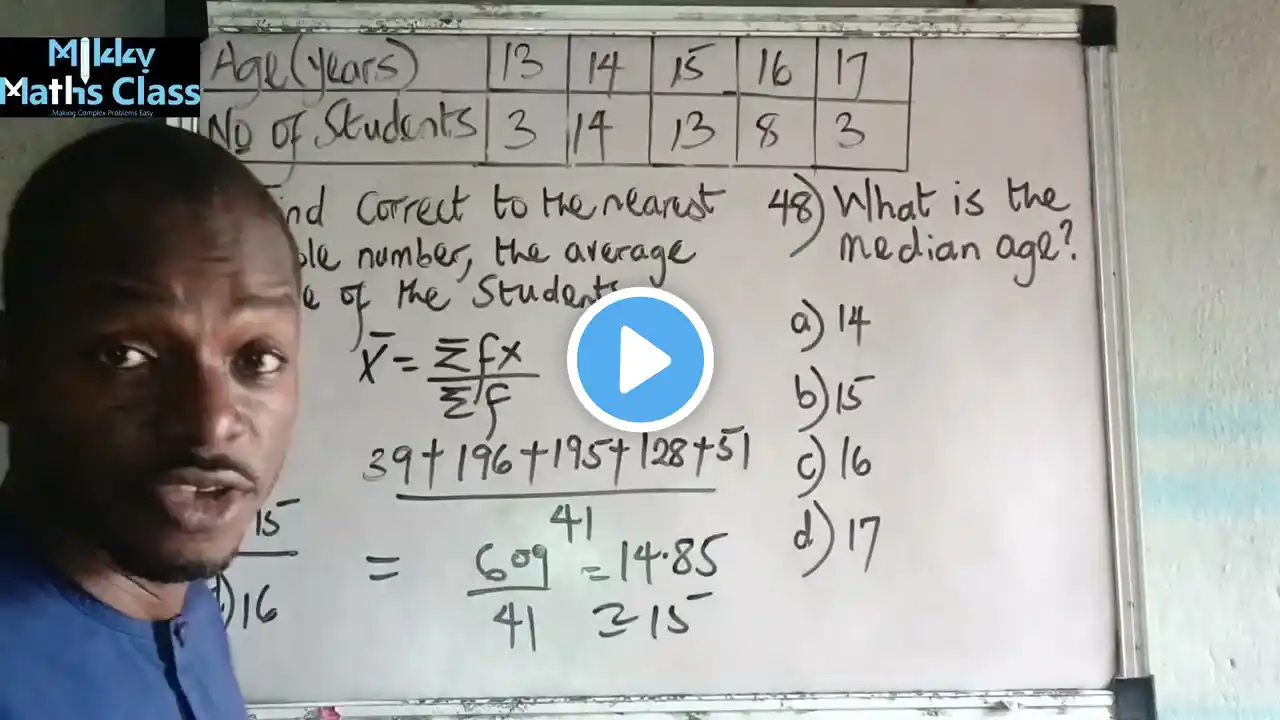 Mikky
Maths Class
Making Complex Problems Easy
Age (years) 13 14 15 16 17
No of Students 3 14 13 8 3
correct to the nearest
number, the average
of the Students
x̄ = Σfx
Σf
39+196+195+128+51
41
= 609 = 14.85
41 ≃ 15
15
16
48) What is the
median age?
a) 14
b) 15
c) 16
d) 17